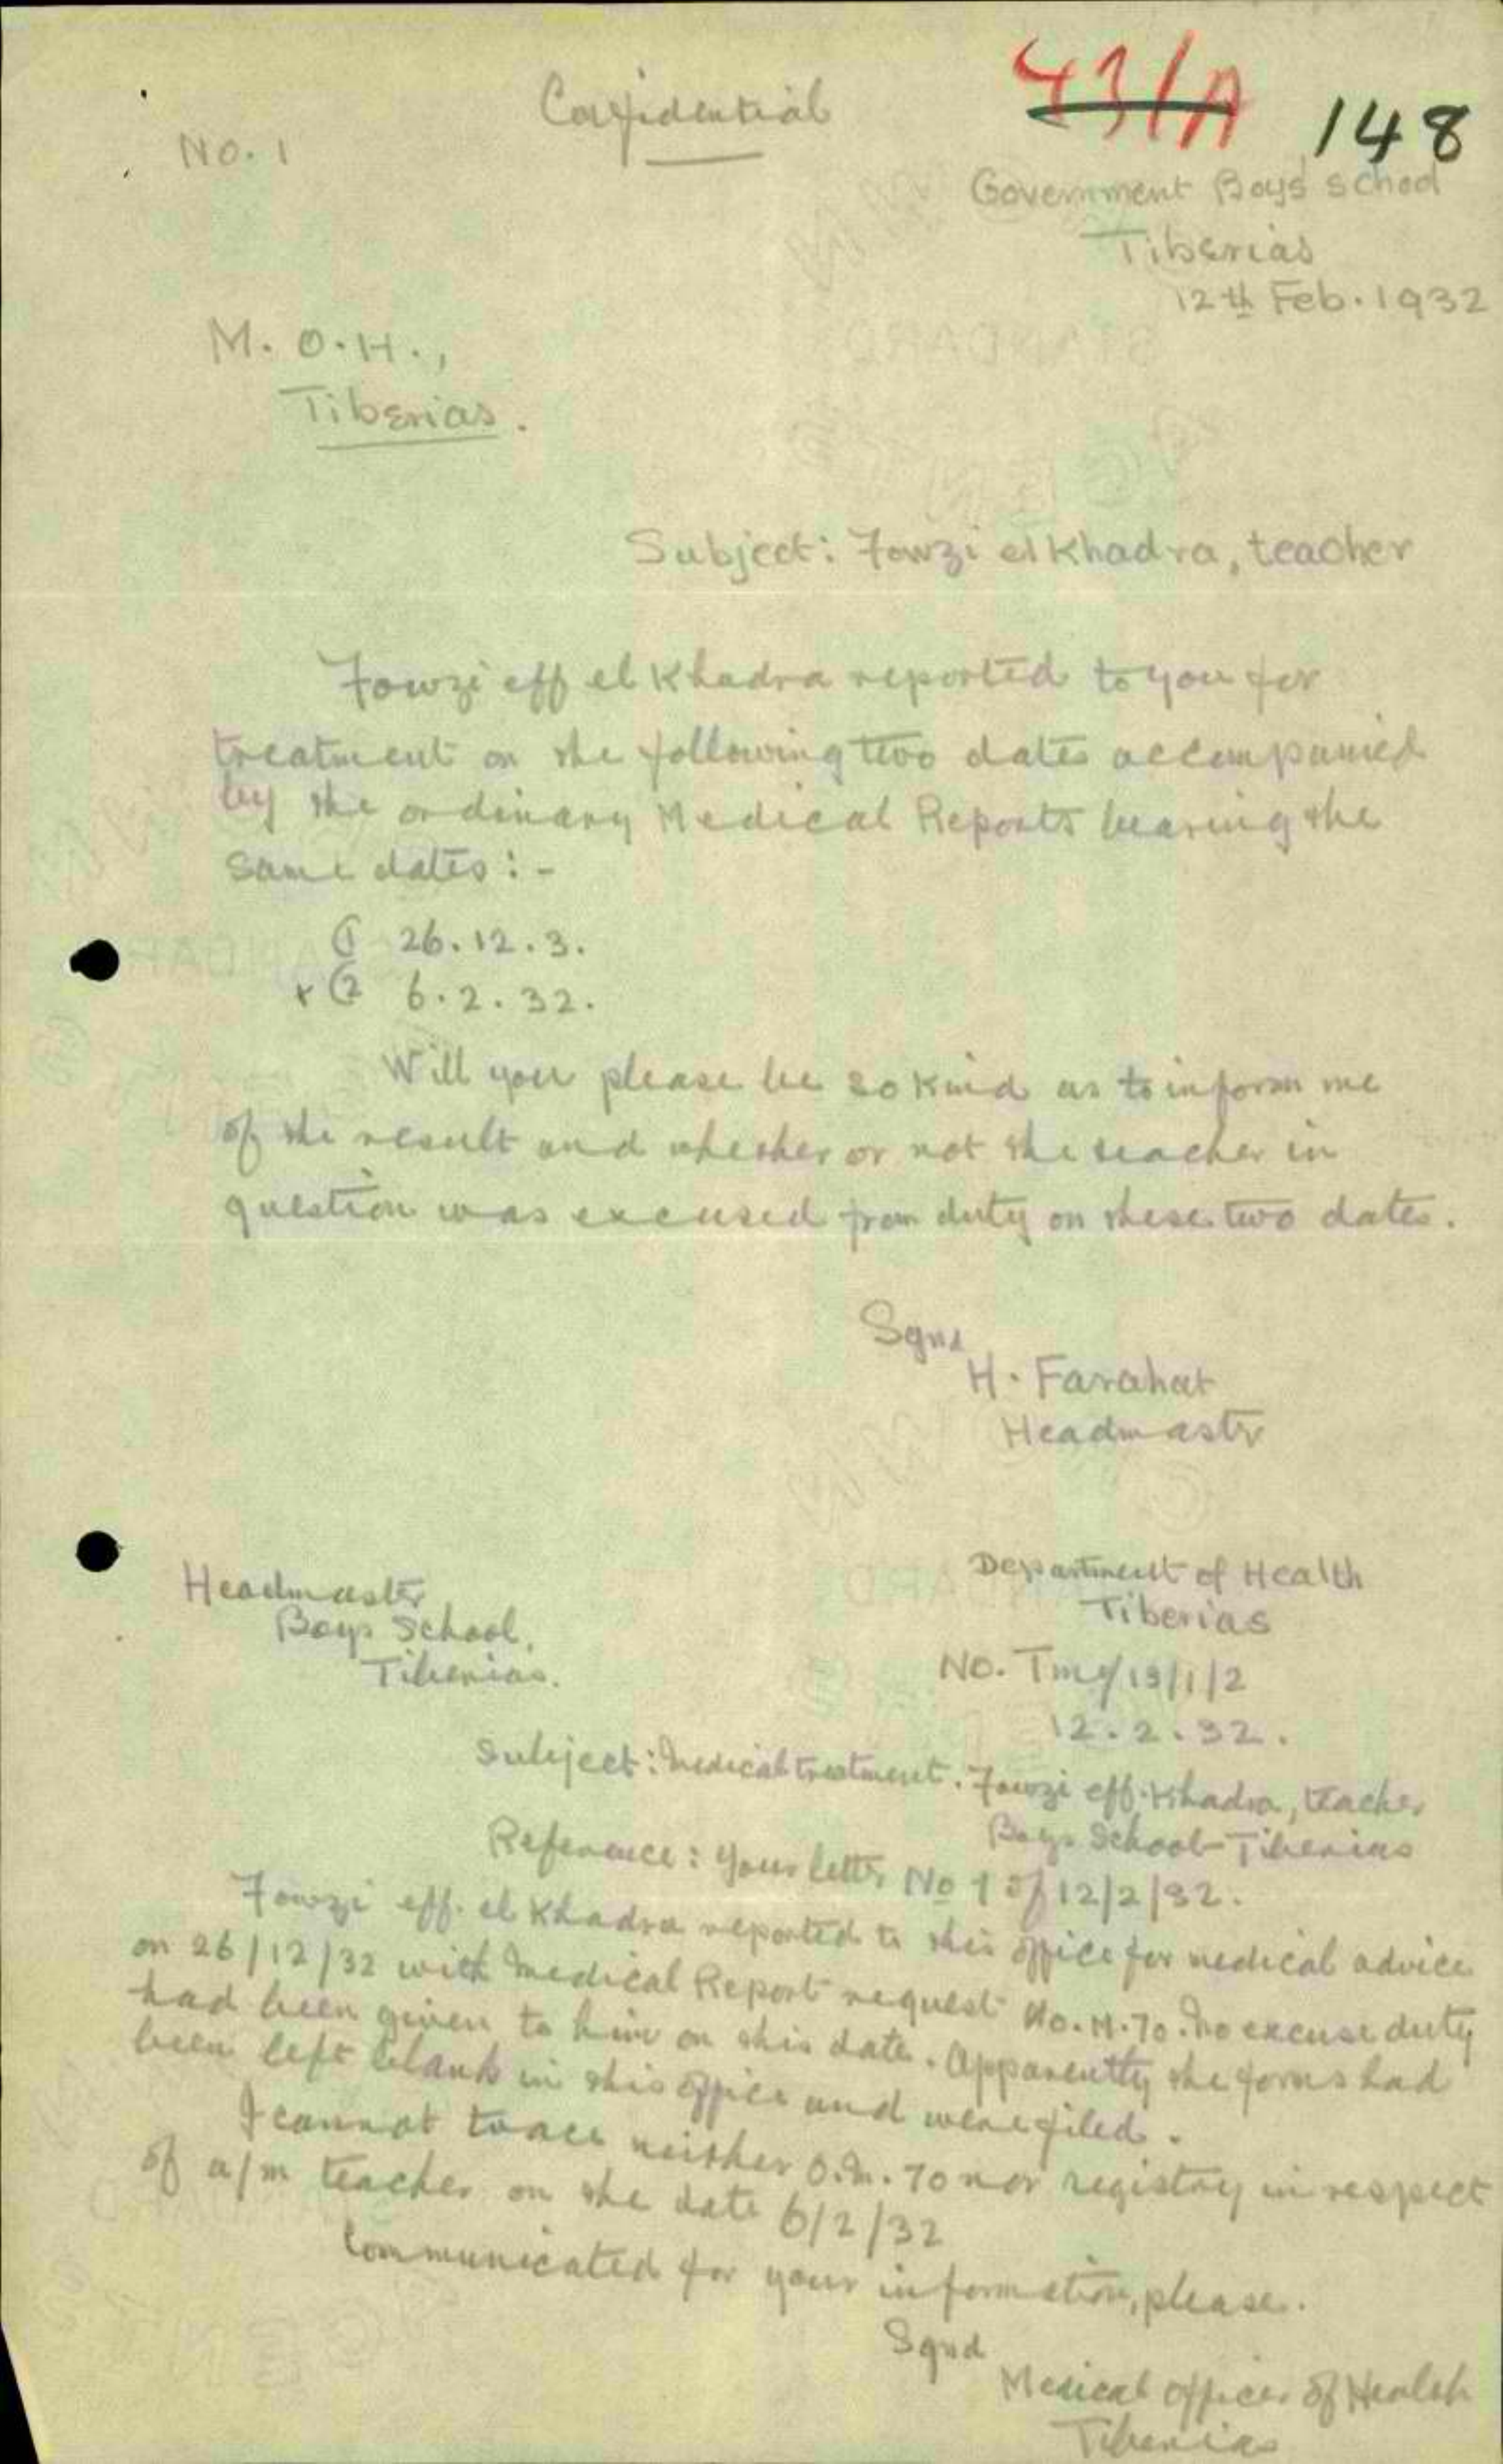 Confidential
431/A 148
No. 1
Government Boys' School
Tiberias
12th Feb. 1932
M. O. H.,
Tiberias.
Subject: Fowzi el Khadra, teacher
Fowzi eff el Khadra reported to you for
treatment on the following two dates accompanied
by the ordinary Medical Reports bearing the
same dates:-
(1 26.12.3.
+ (2 6.2.32.
Will you please be so kind as to inform me
of the result and whether or not the teacher in
question was excused from duty on these two dates.
Sgnd
H. Farahat
Headmaster
Headmaster
Boys School,
Tiberias.
Department of Health
Tiberias
No. /13/1/2
12.2.32.
Subject: Medical treatment. Fowzi eff. Khadra, teacher
Boys School-Tiberias
Reference: Your letter No 1 of 12/2/32.
Fowzi eff. el Khadra reported to this office for medical advice
on 26/12/32 with Medical Report request No. M. 70. No excuse duty
had been given to him on this date. Apparently the forms had
been left blank in this office and were filed.
I cannot trace neither 70 nor registry in respect
of a/m teacher on the date 6/2/32
Communicated for your information, please.
Sgnd
Medical Officer of Health
Tiberias